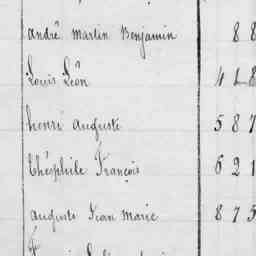 andré Martin Benjamin 88
Louis Léon 418
henri auguste 587
théophile François 621
auguste Jean Marie 875